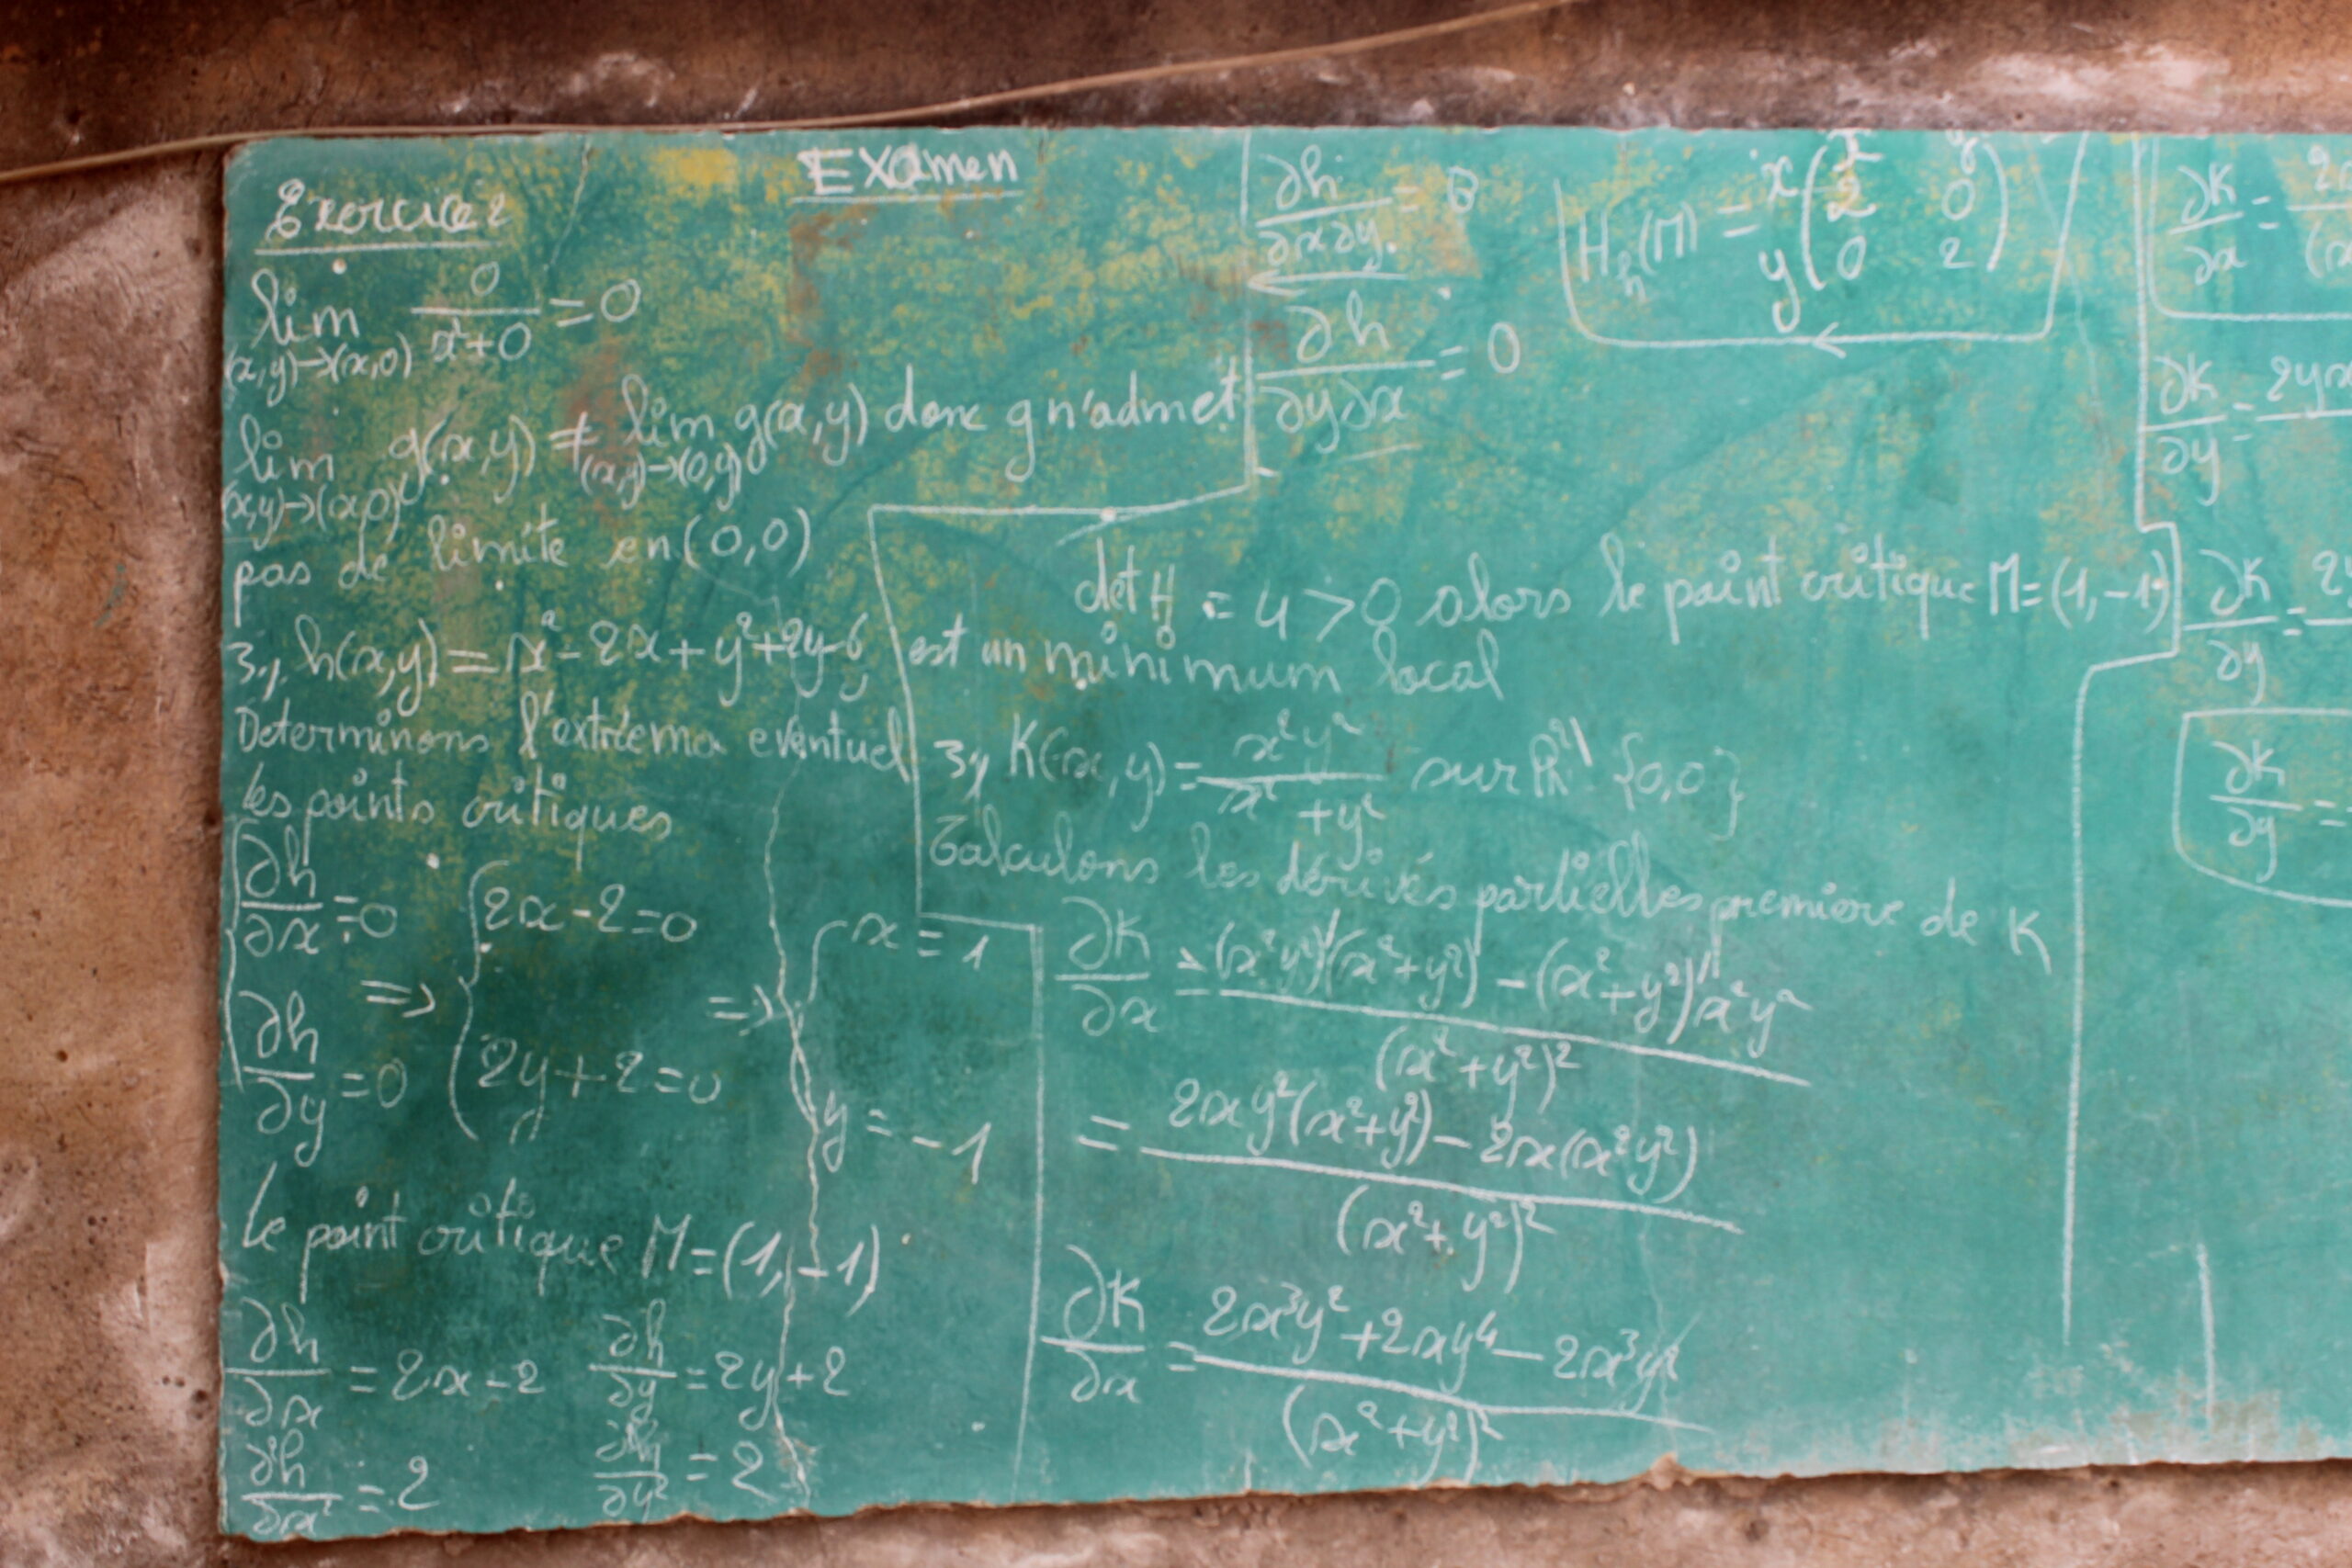 Examen
Exercice 2
lim (x,y)→(x,0) 0/(x²+0) = 0
lim (x,y)→(x,0) g(x,y) ≠ lim (x,y)→(0,y) g(x,y) donc g n'admet
pas de limite en (0,0)
3) h(x,y) = x² - 2x + y² + 2y - 6
Determinons l'extrema eventuel
les points critiques
{ ∂h/∂x = 0
∂h/∂y = 0
⇒ { 2x - 2 = 0
2y + 2 = 0
⇒ { x = 1
y = -1
Le point critique M = (1, -1)
∂h/∂x = 2x - 2 ∂h/∂y = 2y + 2
∂h/∂x² = 2 ∂h/∂y² = 2
∂h/∂x∂y = 0
∂h/∂y∂x = 0
x y
H_h(M) = x ( 2 0
y 0 2 )
det H = 4 > 0 alors le point critique M = (1, -1)
est un minimum local
3) K(x,y) = x²y²/(x² + y²) sur R² \ {0,0}
Calculons les dérivés partielles premiere de K
∂K/∂x = ((x²y²)'(x²+y²) - (x²+y²)'x²y²)/(x²+y²)²
= (2xy²(x²+y²) - 2x(x²y²))/(x²+y²)²
∂K/∂x = (2x³y² + 2xy⁴ - 2x³y²)/(x²+y²)²
∂K/∂x =
∂K/∂y = 2yx
∂K/∂y =
∂K/∂y =